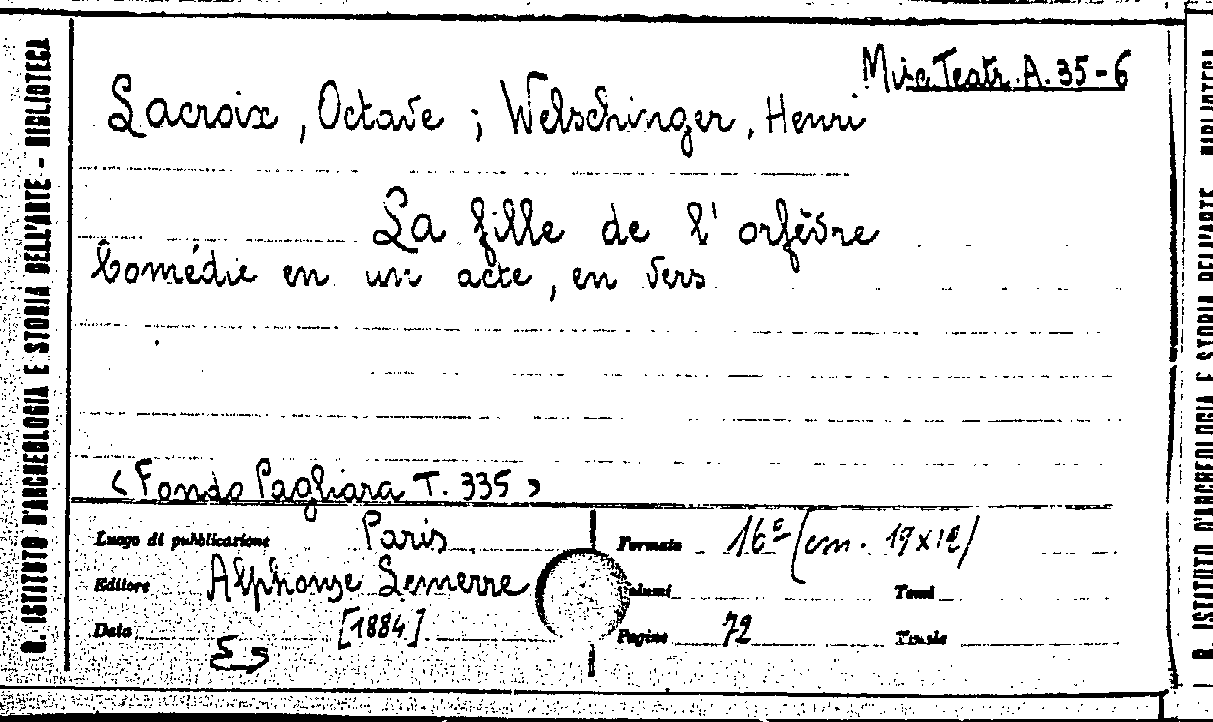 Misc Teatr. A. 35-6
Lacroix, Octave ; Welschinger, Henri
La fille de l'orfèvre
Comédie en un acte, en vers
<Fondo Pagliara T. 335>
Luogo di pubblicazione Paris
Formato 16° (cm. 19x12)
Editore Alphonse Lemerre
Volumi
Tomi
Data [1884]
Pagine 72
Tavole
R. ISTITUTO D'ARCHEOLOGIA E STORIA DELL'ARTE - BIBLIOTECA
R. ISTITUTO D'ARCHEOLOGIA E STORIA DELL'ARTE BIBLIOTECA